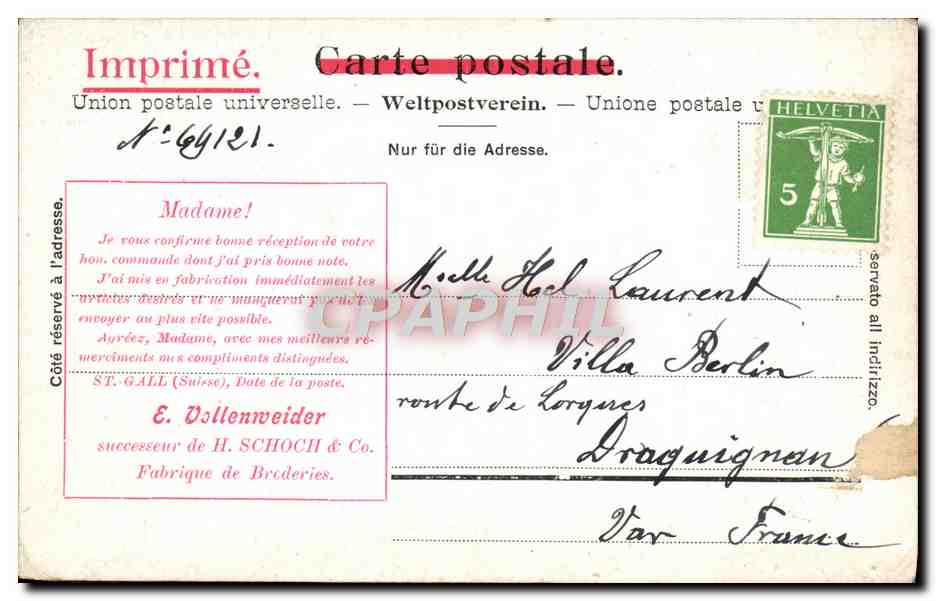 Imprimé. Carte postale.
Union postale universelle. — Weltpostverein. — Unione postale u
HELVETIA
5
No 69121.
Nur für die Adresse.
Côté réservé à l'adresse.
Madame!
Je vous confirme bonne réception de votre
hon. commande dont j'ai pris bonne note.
J'ai mis en fabrication immédiatement les
articles désirés et ne manquerai pas de l
envoyer au plus vite possible.
Agréez, Madame, avec mes meilleurs re-
merciments mes compliments distinguées.
ST.-GALL (Suisse), Date de la poste.
E. Vollenweider
successeur de H. SCHOCH & Co.
Fabrique de Broderies.
CPAPHIL
Mselle Hel Laurent
Villa Berlin
route de Lorgues
Draguignan
Var France
servato all indirizzo.